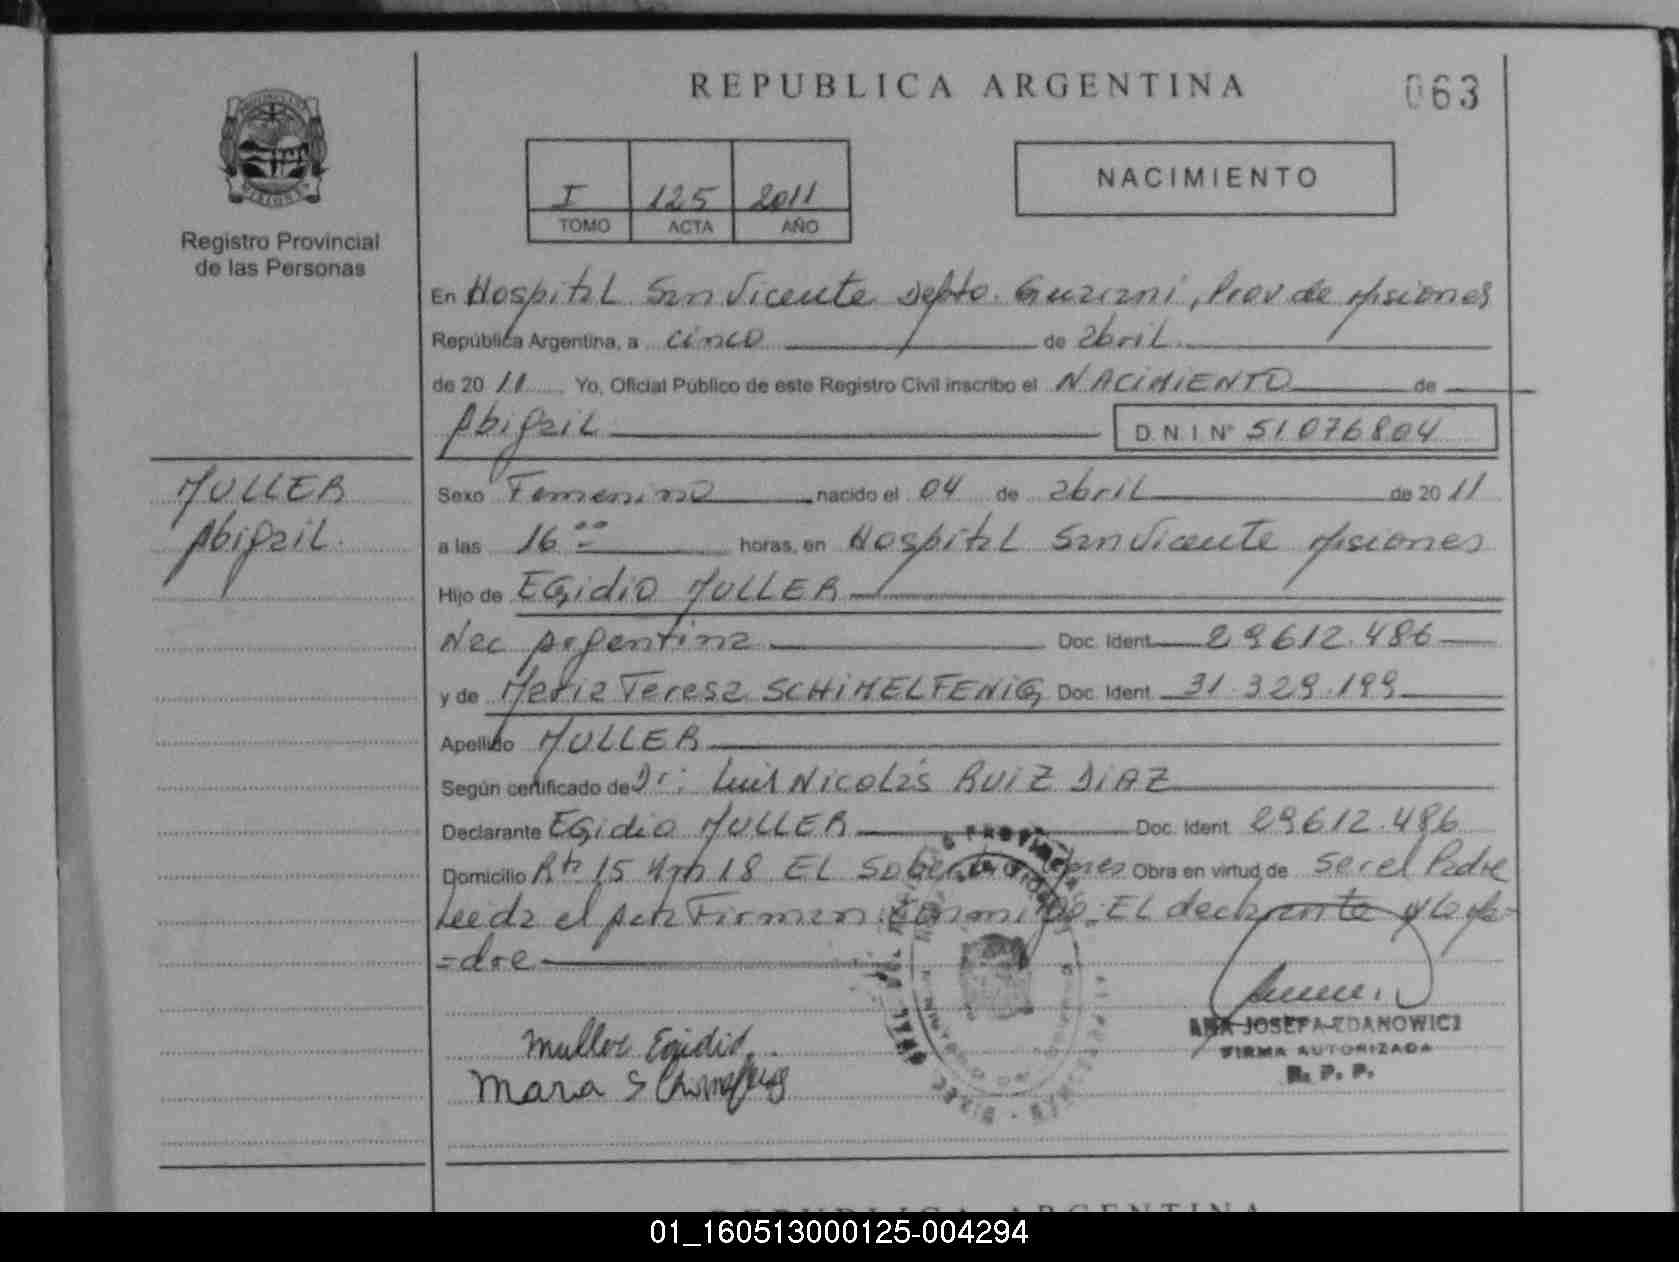 REPUBLICA ARGENTINA
063
I 125 2011
TOMO ACTA AÑO
NACIMIENTO
Registro Provincial
de las Personas
En Hospital San Vicente Depto. Guarani, Prov de Misiones
República Argentina, a cinco de abril
de 2011 Yo, Oficial Público de este Registro Civil inscribo el NACIMIENTO de
Abigail D.N.I. Nº 51.076804
MULLER
Abigail.
Sexo Femenino nacido el 04 de abril de 2011
a las 16 ºº horas, en Hospital San Vicente Misiones
Hijo de EGidio MULLER
Nac Argentina Doc. Ident. 29612.486
y de Maria Teresa SCHIMELFENIG Doc. Ident. 31.329.199
Apellido MULLER
Según certificado de Dr: Luis Nicolás RUIZ DIAZ
Declarante EGidio MULLER Doc. Ident. 29612.486
Domicilio Rta 15 Km 18 EL Obra en virtud de ser el Padre
Leida el Acta Firman Conmigo EL declarante y la Ma-
=dre
Muller Egidio
ANA JOSEFA ZDANOWICZ
FIRMA AUTORIZADA
R. P. P.
REPUBLICA ARGENTINA
01_160513000125-004294